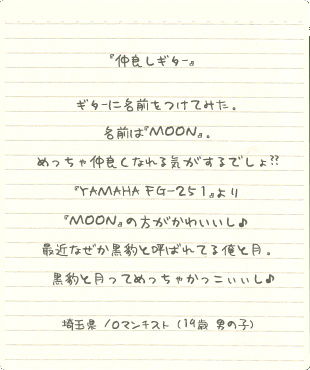 『仲良しギター』
ギターに名前をつけてみた。
名前は『MOON』。
めっちゃ仲良くなれる気がするでしょ??
『YAMAHA FG-251』より
『MOON』の方がかわいいし♪
最近なぜか黒豹と呼ばれてる俺と月。
黒豹と月ってめっちゃかっこいいし♪
埼玉県 ロマンチスト (19歳 男の子)